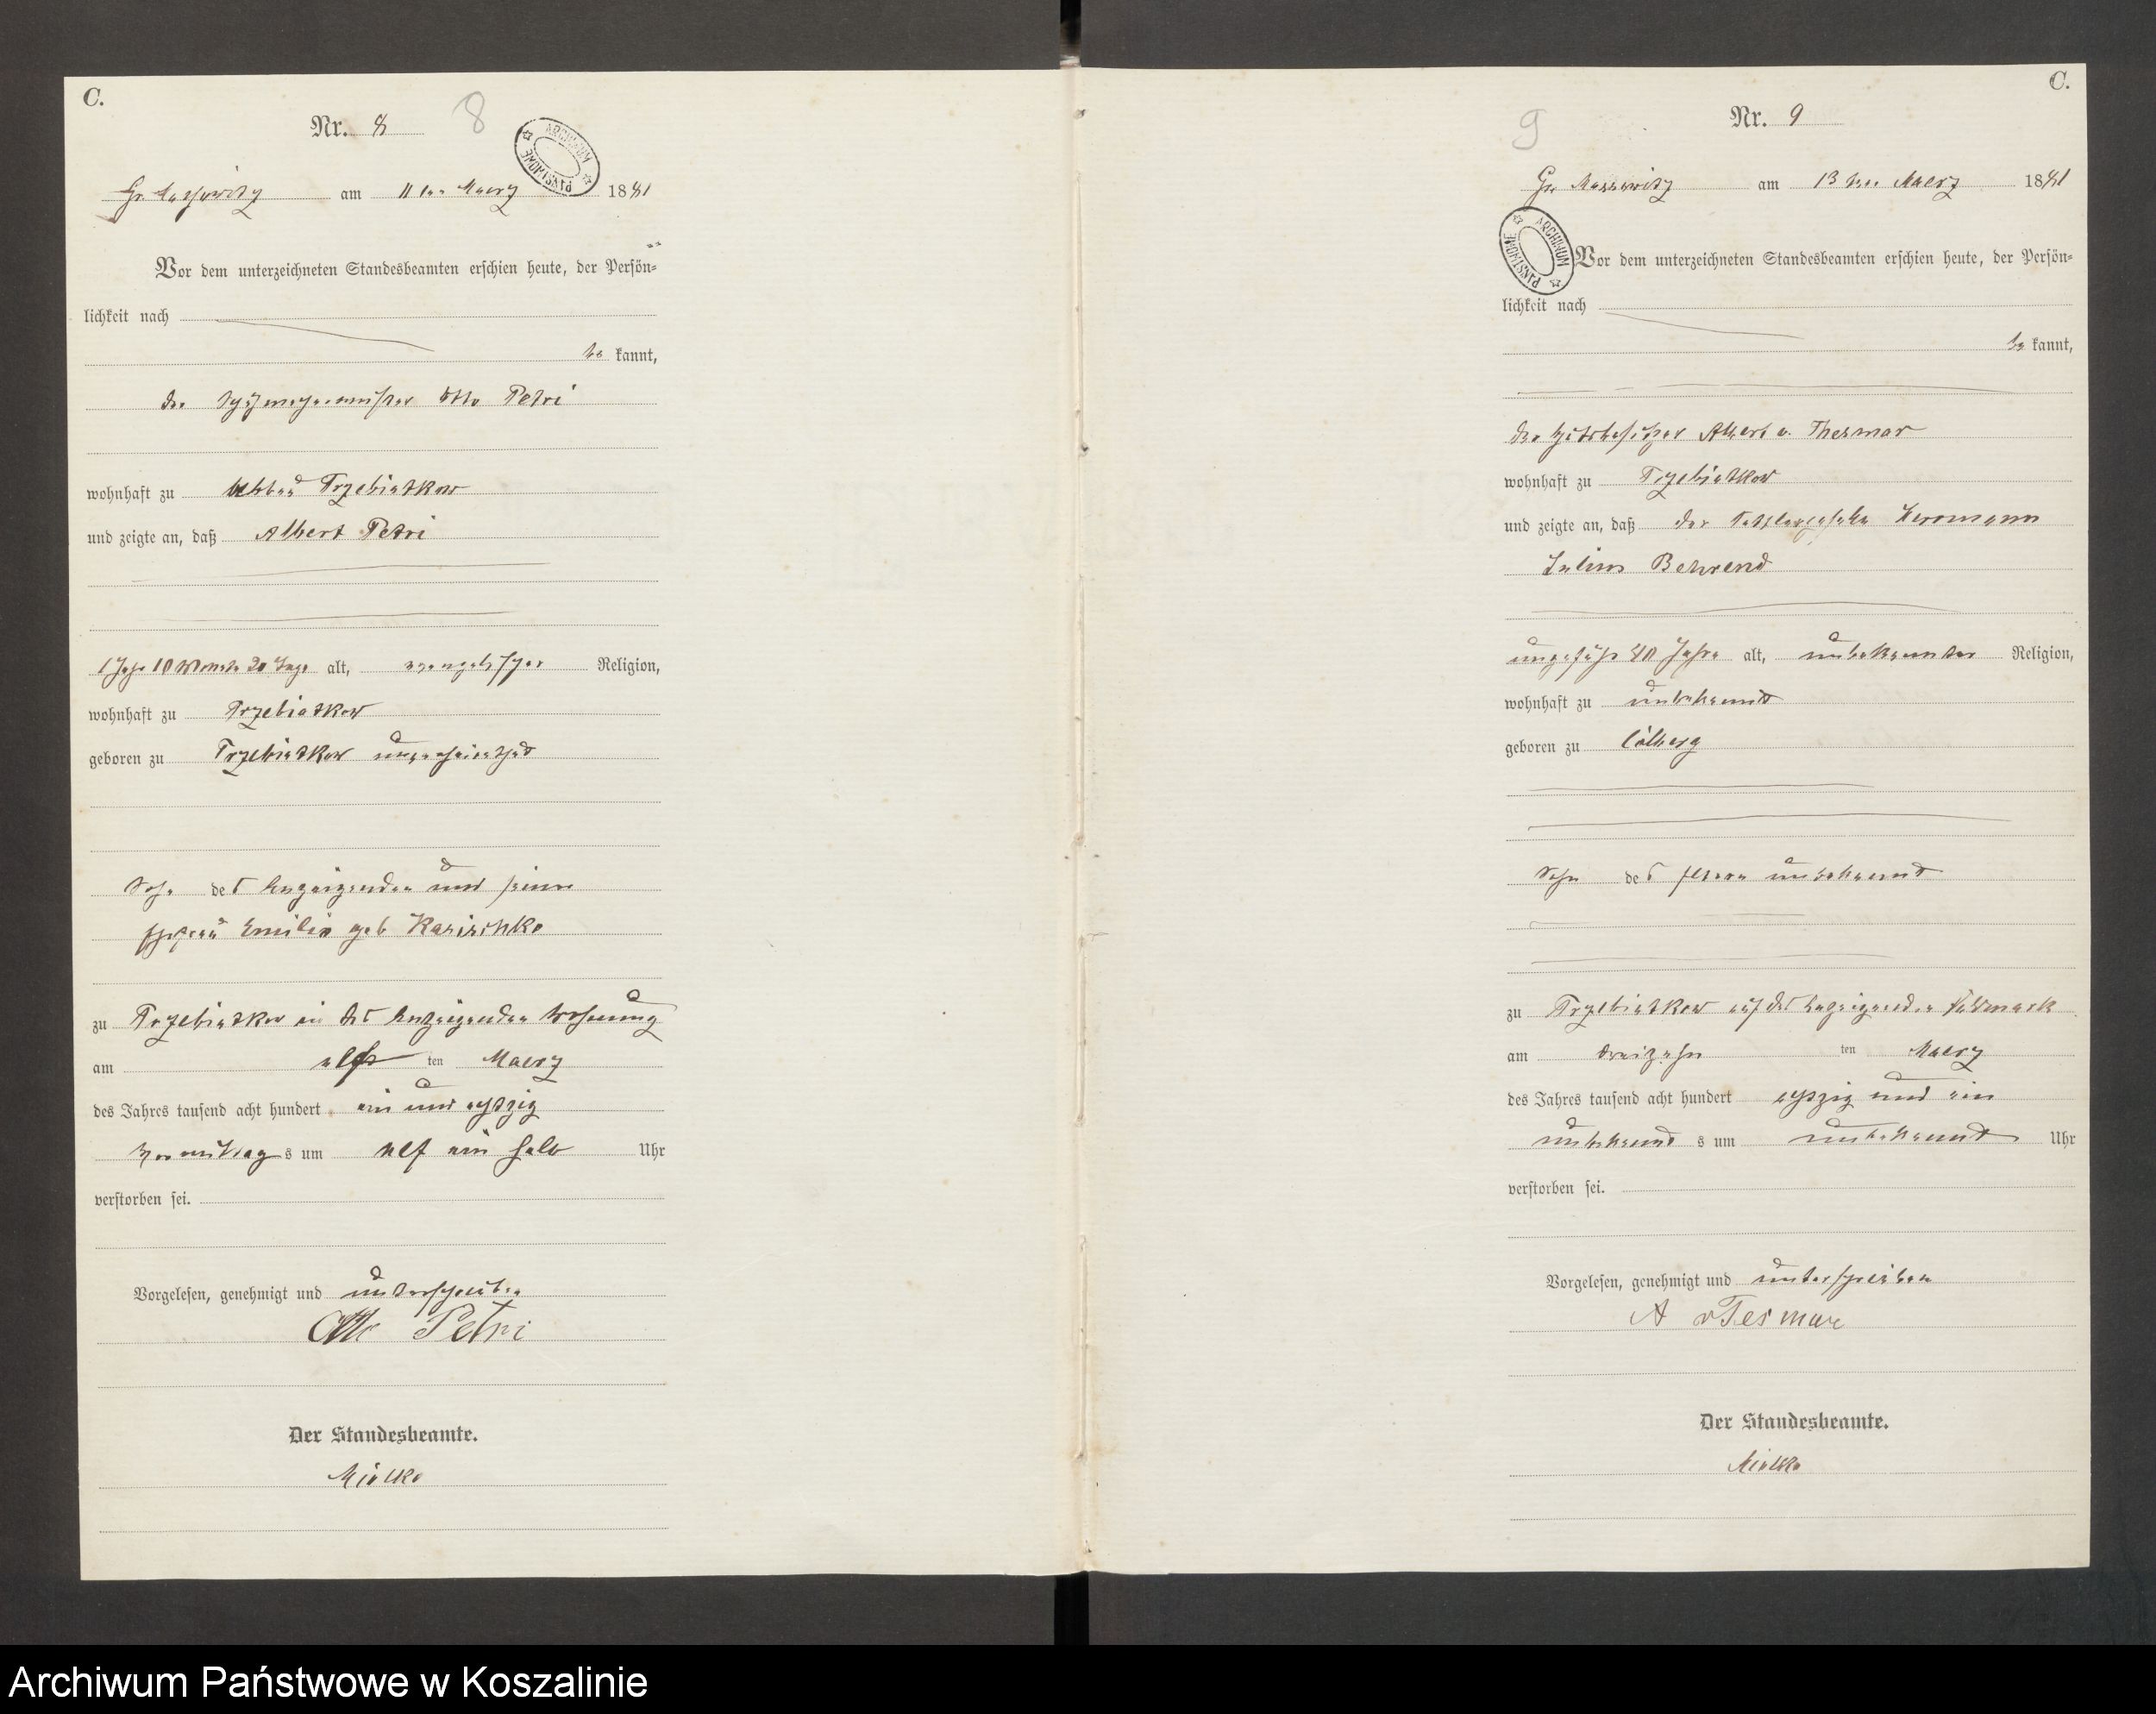 C.
Nr. 8
8
ARCHIWUM PAŃSTWOWE
Gr Massowitz am 11 ten Maerz 1881
Vor dem unterzeichneten Standesbeamten erschien heute, der Persön=
lichkeit nach
be kannt,
der Otto Petri
wohnhaft zu Trzebiatkow
und zeigte an, daß Albert Petri
1 Jahr 10 Monate 20 Tage alt, evangelischer Religion,
wohnhaft zu Trzebiatkow
geboren zu Trzebiatkow unverheirathet
Sohn des Anzeigenden und seiner
Ehefrau Emilie geb
zu Trzebiatkow in des Anzeigenden Wohnung
am elf ten Maerz
des Jahres tausend acht hundert ein und achtzig
Vormittag s um elf ein halb Uhr
verstorben sei.
Vorgelesen, genehmigt und unterschrieben
Otto Petri
Der Standesbeamte.
Mielke
C.
Nr. 9
9
Gr Massowitz am 13 ten Maerz 1881
ARCHIWUM PAŃSTWOWE
Vor dem unterzeichneten Standesbeamten erschien heute, der Persön=
lichkeit nach
be kannt,
der Gutsbesitzer Albert v. Thesmar
wohnhaft zu Trzebiatkow
und zeigte an, daß der Herrmann
Julius Behrend
ungefähr 40 Jahre alt, unbekannter Religion,
wohnhaft zu unbekannt
geboren zu Cölberg
Sohn des Eltern unbekannt
zu Trzebiatkow auf des Anzeigenden Feldmark
am dreizehn ten Maerz
des Jahres tausend acht hundert achtzig und ein
unbekannt s um unbekannt Uhr
verstorben sei.
Vorgelesen, genehmigt und unterschrieben
A v Tesmar
Der Standesbeamte.
Mielke
Archiwum Państwowe w Koszalinie